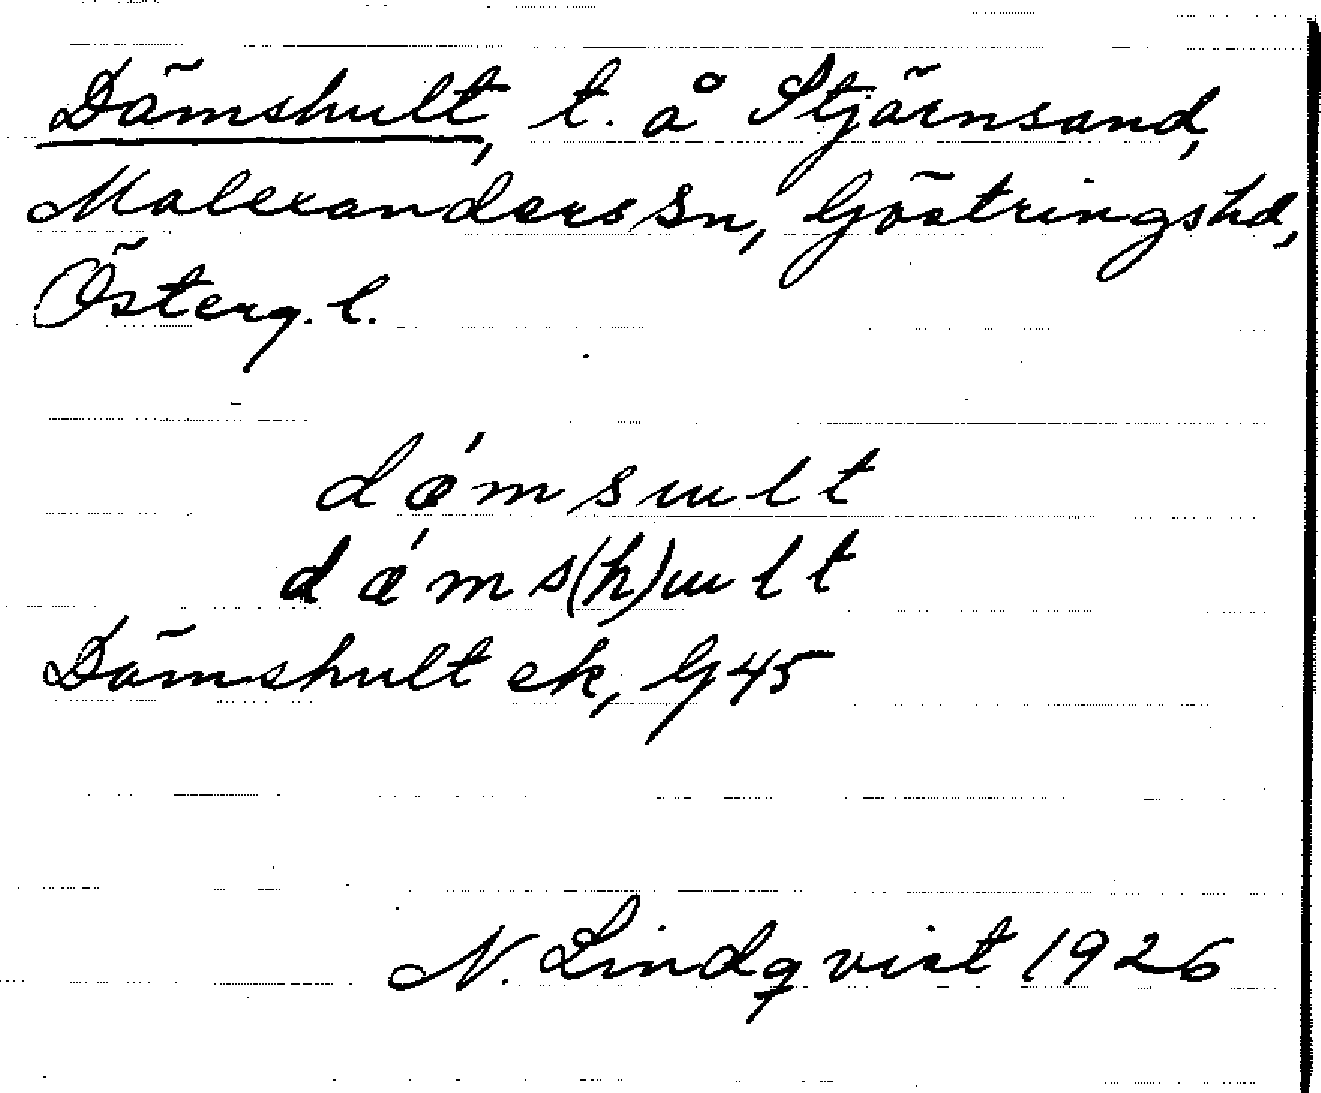 Dämshult, t. å Stjärnsand,
Malexanders sn, Göstringshd,
Österg. l.
dǽmsult
dǽms(h)ult
Dämshult ek, G 45
N. Lindqvist 1926